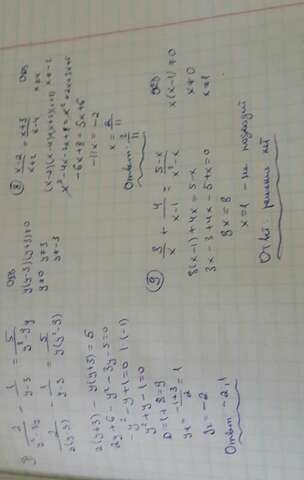 2/(y²-3y) - 1/(y-3) = 5/(y³-9y)
ОДЗ
2/(y(y-3)) - 1/(y-3) = 5/(y(y²-9))
y(y-3)(y+3)≠0
y≠0 y≠3
y≠-3
2(y+3) - y(y+3) = 5
2y+6-y²-3y-5=0
-y²-y+1=0 | (-1)
y²+y-1=0
y₂ = -2
Ответ: -2, 1
⑧ (x-2)/(x+2) = (x+3)/(x-4)
ОДЗ
(x-2)(x-4)=(x+3)(x+2)
x≠4
x≠-2
x²-4x-2x+8=x²+2x+3x+6
-6x+8=5x+6
-11x=-2
x=2/11
Ответ: 2/11
⑨ 3/x + 4/(x-1) = (5-x)/(x²-x)
ОДЗ
x(x-1)≠0
3(x-1)+4x=5-x
x≠0
3x-3+4x-5+x=0
x≠1
8x=8
x=1 - не подходит
Ответ: решений нет